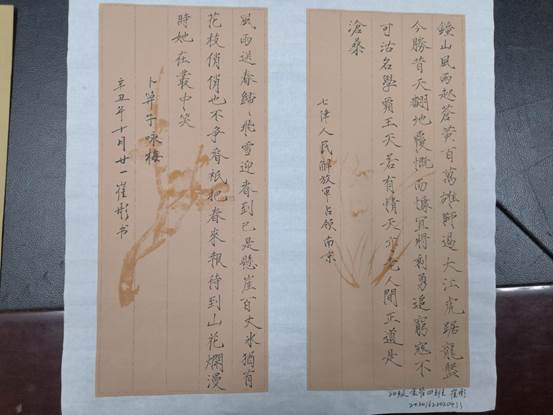 鐘山風雨起蒼黃百萬雄師過大江虎踞龍盤
今勝昔天翻地覆慨而慷宜將剩勇追窮寇不
可沽名學霸王天若有情天亦老人間正道是
滄桑
七律人民解放軍占領南京
風雨送春歸、飛雪迎春到已是懸崖百丈冰猶有
花枝俏俏也不爭春衹把春來報待到山花爛漫
時她在叢中笑
卜算子咏梅
辛丑年十月廿一崔彤书
20级金管四班 崔彤